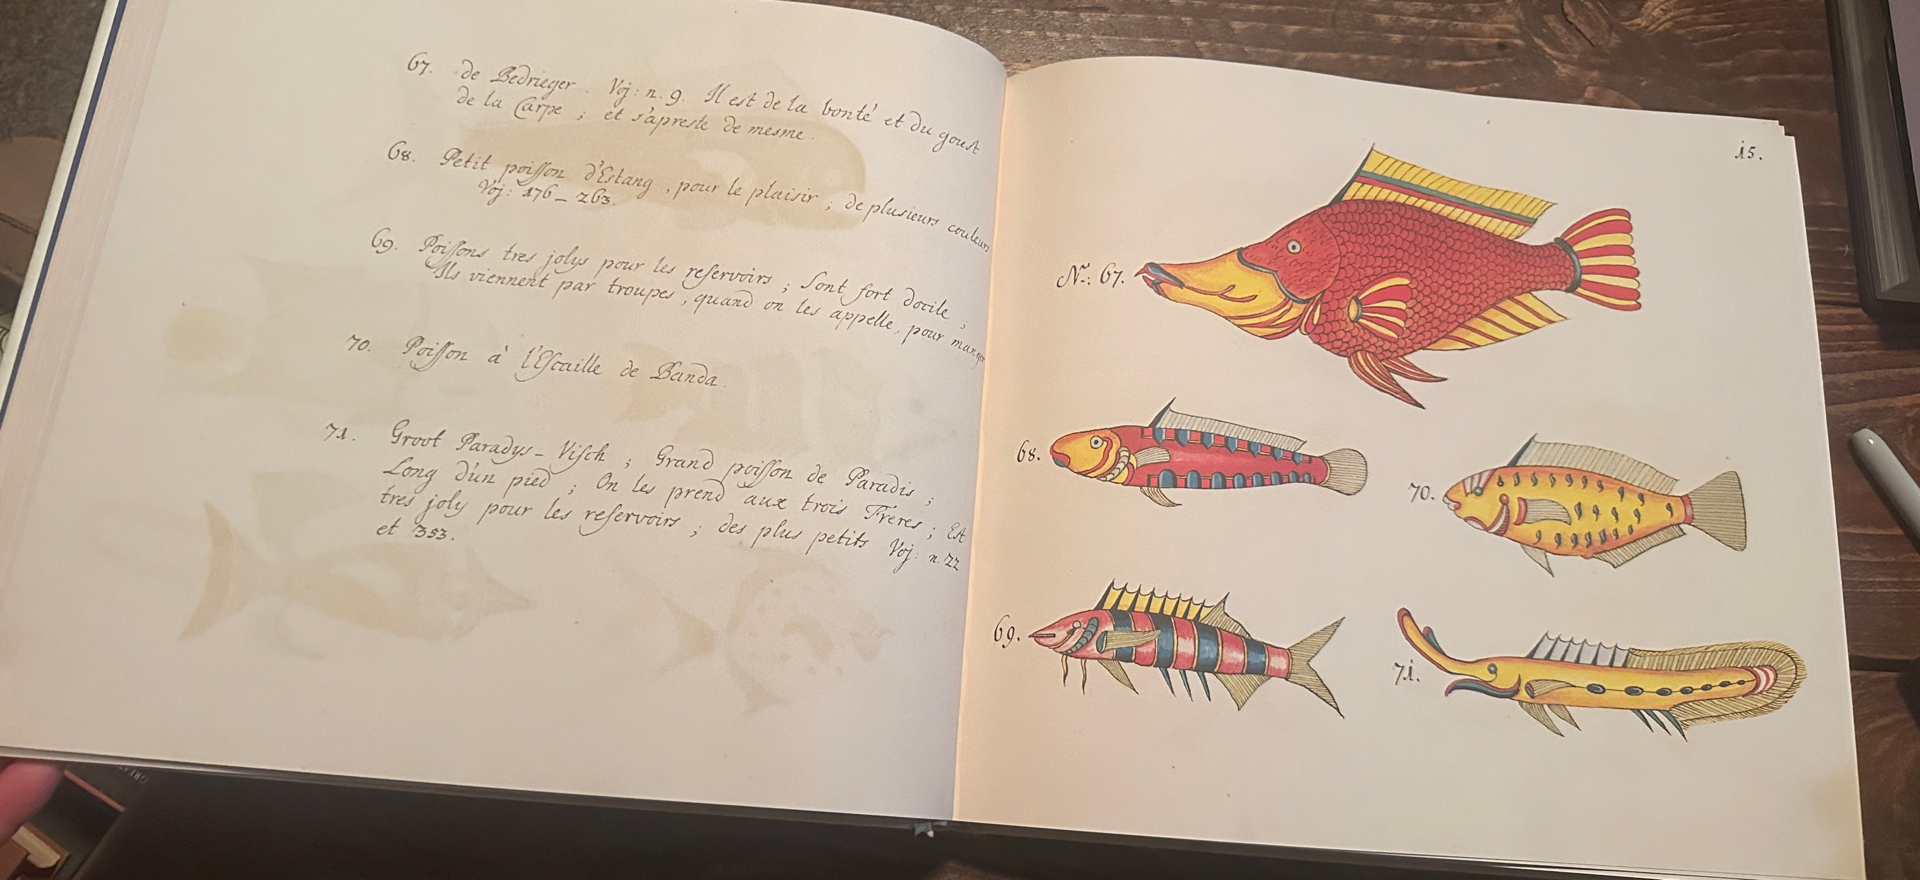 67. de Bedrieger. Voj: n. 9. Il est de la bonté et du goust
de la Carpe ; et s'apreste de mesme.
68. Petit poisson d'Estang, pour le plaisir ; de plusieurs couleurs
Voj: 176_ 263.
69. Poissons tres jolys pour les reservoirs ; Sont fort docile ;
Ils viennent par troupes, quand on les appelle, pour manger
70. Poisson à l'Escaille de Banda.
71. Groot Paradys-Visch ; Grand poisson de Paradis ;
Long d'un pied ; On les prend aux trois Freres ; Est
tres joly pour les reservoirs ; des plus petits Voj: n. 22
et 353.
15.
N.: 67.
68.
70.
69.
71.